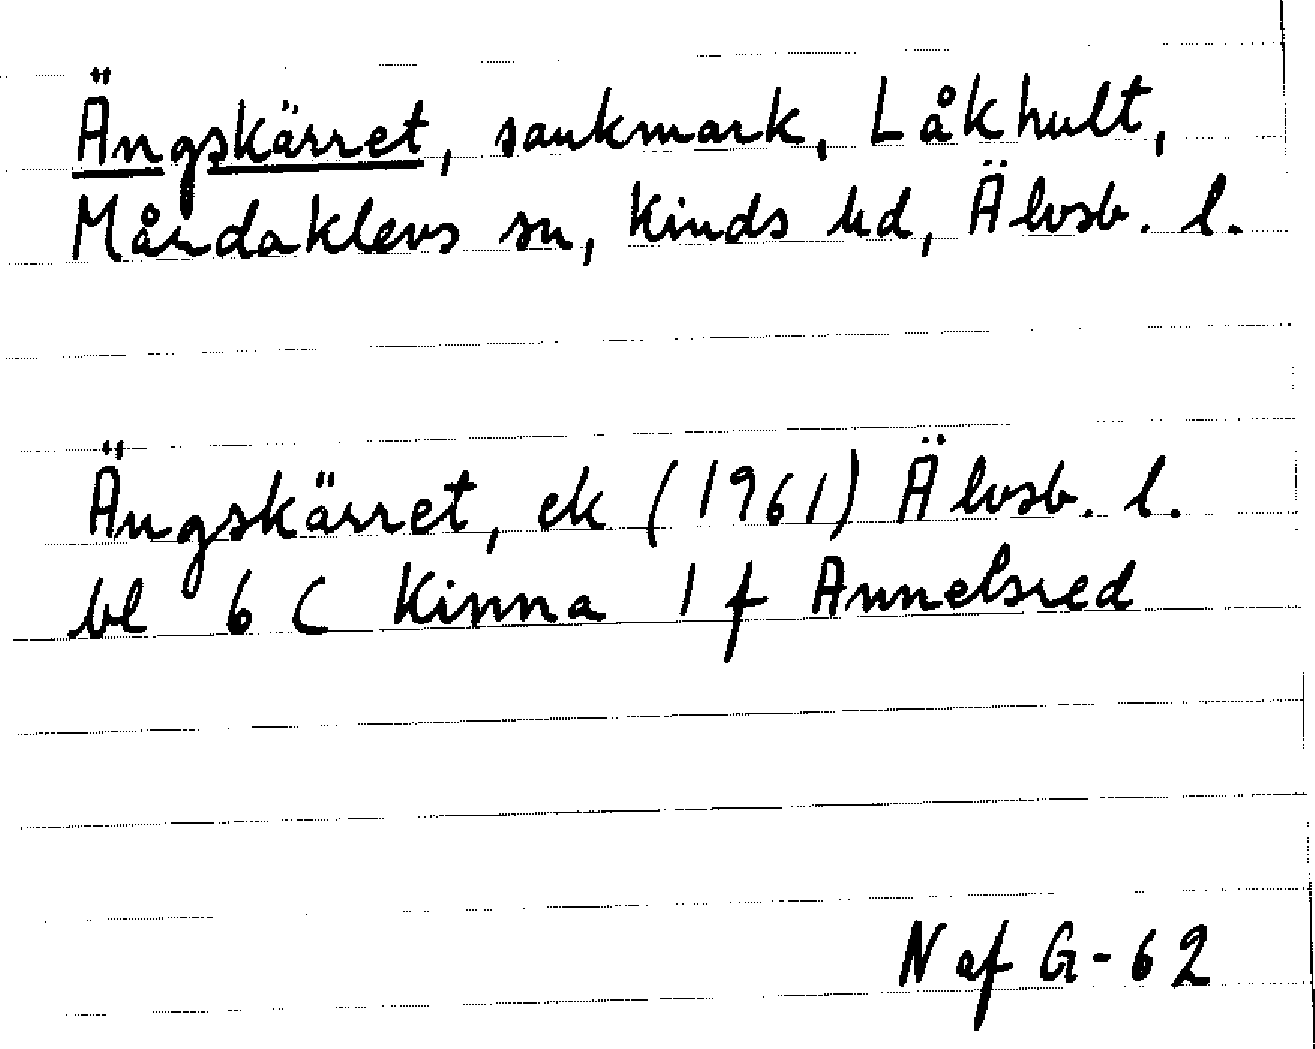 Ängskärret, sankmark, Låkhult,
Mårdaklevs sn, Kinds hd, Älvsb. l.
Ängskärret, ek (1961) Älvsb. l.
bl 6 C Kinna 1 f Annelsred
N af G-62